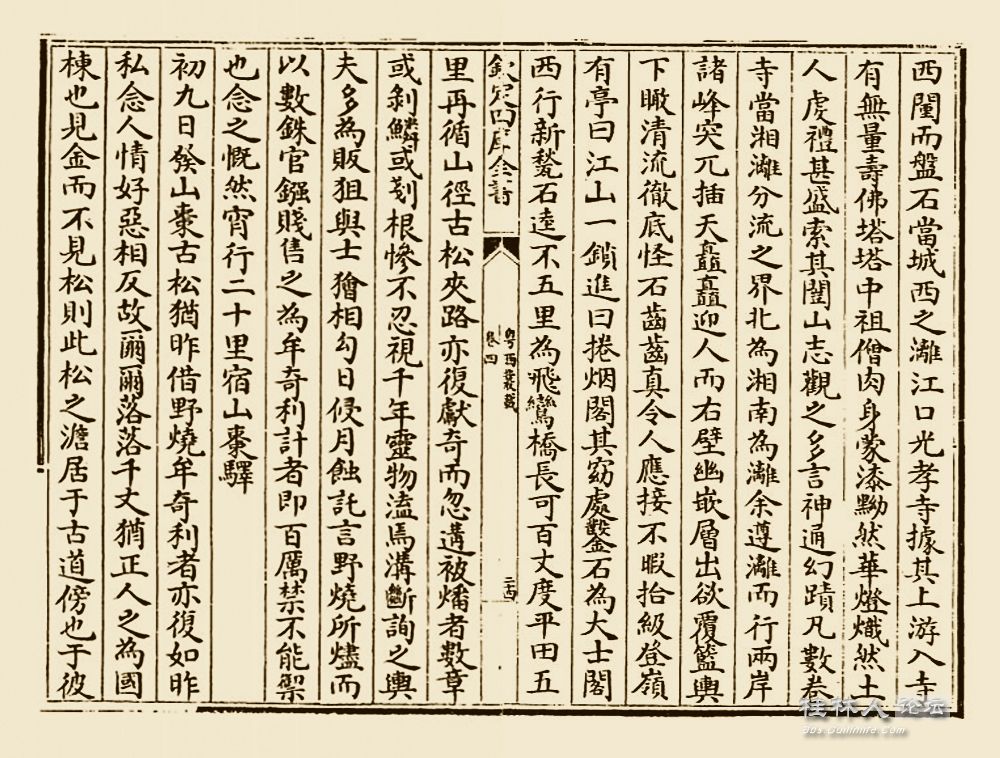 西闉而盤石當城西之灕江口光孝寺據其上游入寺
有無量壽佛塔塔中祖僧肉身蒙漆黝然華燈熾然土
人虔禮甚盛索其闉山志觀之多言神通幻蹟凡數卷
寺當湘灕分流之界北為湘南為灕余遵灕而行兩岸
諸峰突兀插天矗矗迎人而右壁幽嵌層出欲覆籃輿
下瞰清流徹底怪石齒齒真令人應接不暇拾級登嶺
有亭曰江山一鎖進曰捲烟閣其窈處鑿石為大士閣
西行新甃石逵不五里為飛鸞橋長可百丈度平田五
欽定四庫全書
粵西叢載
卷四
二十四
里再循山徑古松夾路亦復獻奇而忽遘被燔者數章
或剝鱗或剗根慘不忍視千年靈物溘焉溝斷詢之輿
夫多為販狙與士獪相勾日侵月蝕託言野燒所燼而
以數銖官鏹賤售之為牟奇利計者即百厲禁不能禦
也念之慨然宵行二十里宿山棗驛
初九日發山棗古松猶昨借野燒牟奇利者亦復如昨
私念人情好惡相反故爾爾落落千丈猶正人之為國
棟也見金而不見松則此松之澹居于古道傍也于彼
桂林人论坛
bbs.guilinlife.com